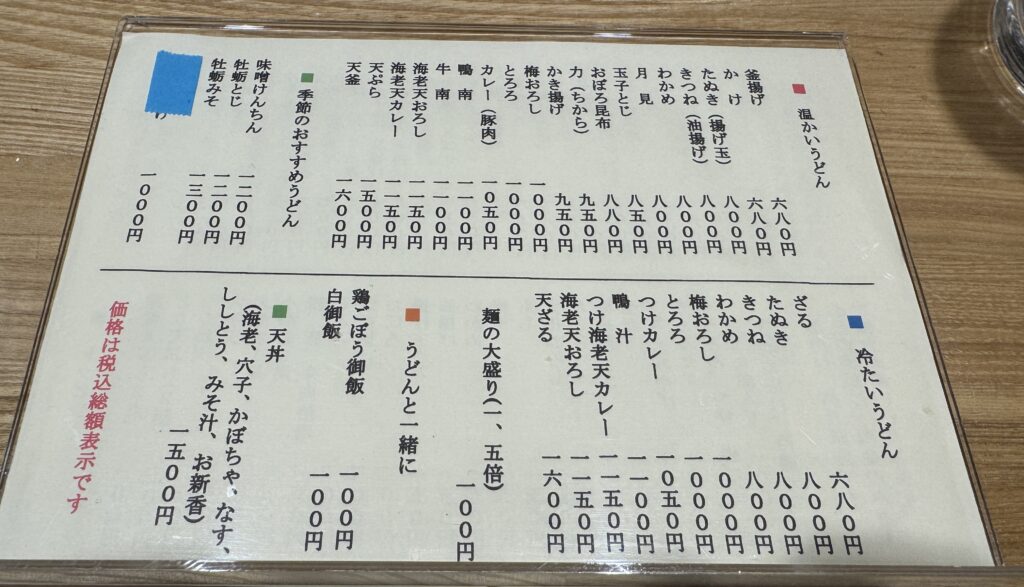 ■ 温かいうどん
釜揚げ 六八〇円
かけ 六八〇円
たぬき(揚げ玉) 八〇〇円
きつね(油揚げ) 八〇〇円
わかめ 八〇〇円
月見 八〇〇円
玉子とじ 八五〇円
おぼろ昆布 八八〇円
力(ちから) 九五〇円
かき揚げ 九五〇円
梅おろし 一〇〇〇円
とろろ 一〇〇〇円
カレー(豚肉) 一〇五〇円
鴨南 一一〇〇円
牛南 一一〇〇円
海老天おろし 一一五〇円
海老天カレー 一一五〇円
天ぷら 一五〇〇円
天釜 一六〇〇円
■ 季節のおすすめうどん
味噌けんちん 一二〇〇円
牡蛎とじ 一二〇〇円
牡蛎みそ 一三〇〇円
一〇〇〇円
■ 冷たいうどん
ざる 六八〇円
たぬき 八〇〇円
きつね 八〇〇円
わかめ 八〇〇円
梅おろし 一〇〇〇円
とろろ 一〇〇〇円
つけカレー 一〇五〇円
鴨汁 一一〇〇円
つけ海老天カレー 一一五〇円
海老天おろし 一一五〇円
天ざる 一六〇〇円
麺の大盛り(一、五倍) 一〇〇円
■ うどんと一緒に
鶏ごぼう御飯 一〇〇円
白御飯 一〇〇円
■ 天丼
(海老、穴子、かぼちゃ、なす、
ししとう、みそ汁、お新香)
一五〇〇円
価格は税込総額表示です